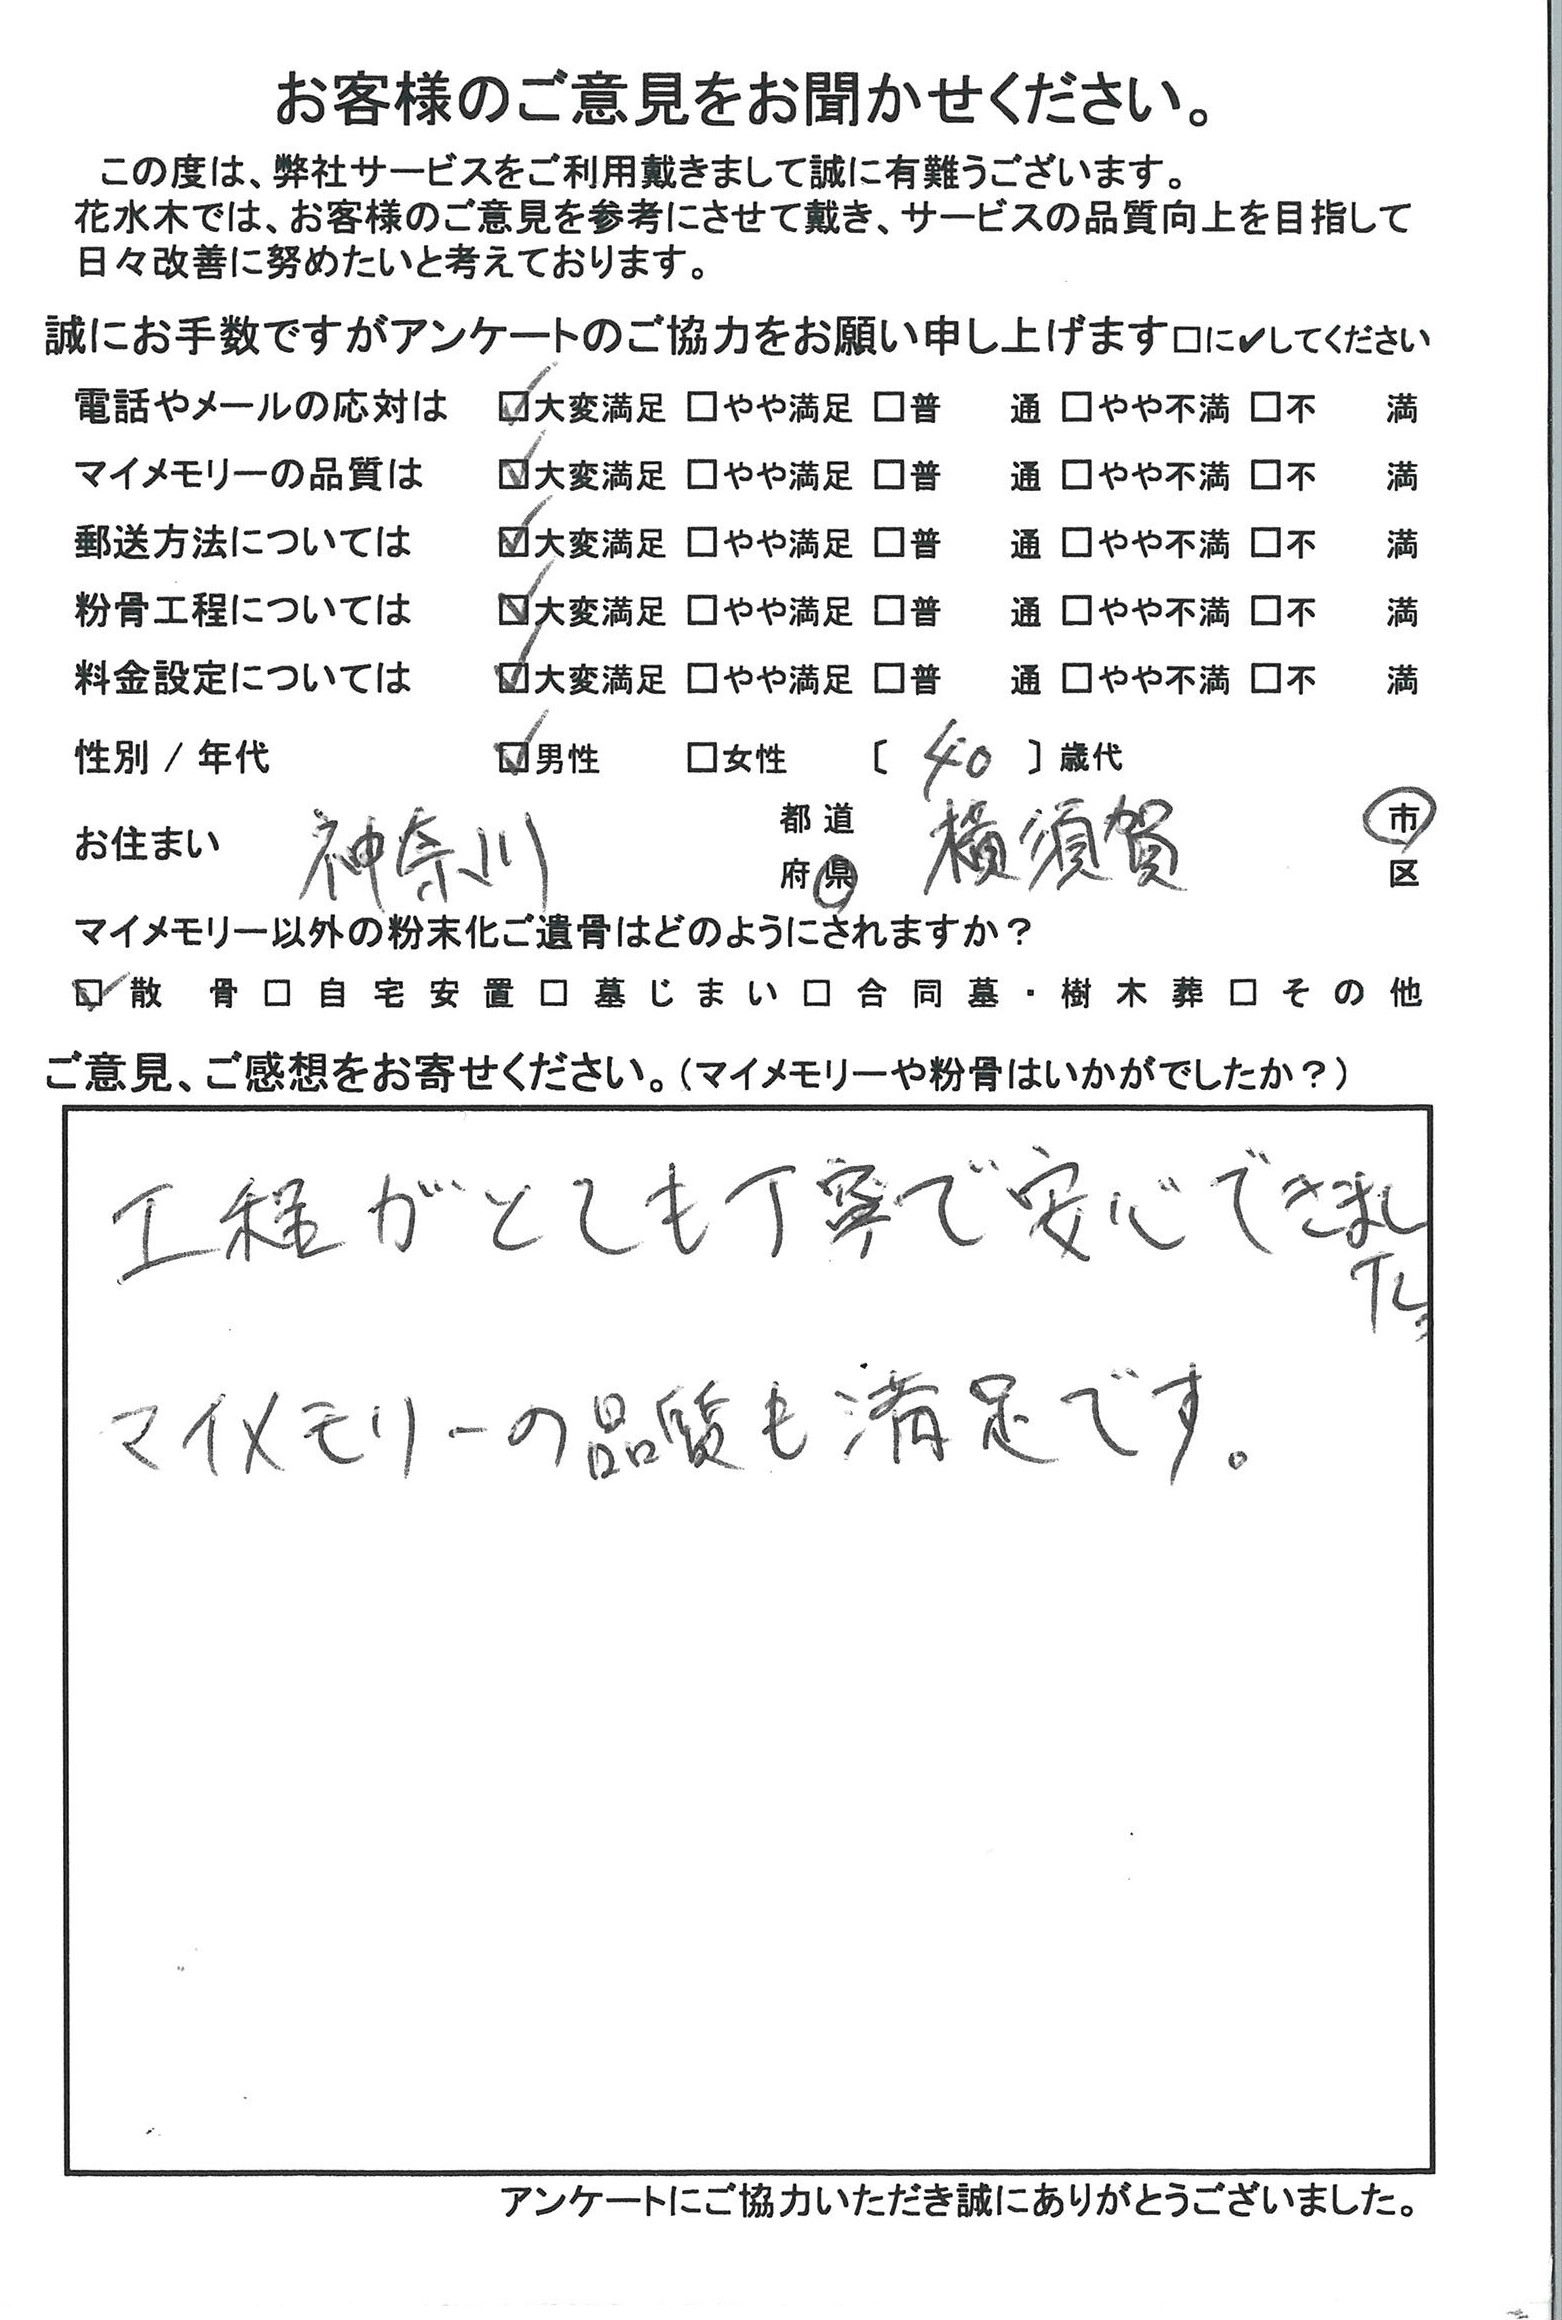 お客様のご意見をお聞かせください。
この度は、弊社サービスをご利用戴きまして誠に有難うございます。
花水木では、お客様のご意見を参考にさせて戴き、サービスの品質向上を目指して
日々改善に努めたいと考えております。
誠にお手数ですがアンケートのご協力をお願い申し上げます□に✔してください
電話やメールの応対は ☑大変満足 □やや満足 □普 通 □やや不満 □不 満
マイメモリーの品質は ☑大変満足 □やや満足 □普 通 □やや不満 □不 満
郵送方法については ☑大変満足 □やや満足 □普 通 □やや不満 □不 満
粉骨工程については ☑大変満足 □やや満足 □普 通 □やや不満 □不 満
料金設定については ☑大変満足 □やや満足 □普 通 □やや不満 □不 満
性別 / 年代 ☑男性 □女性 〔 40 〕歳代
お住まい 神奈川 都道府県 横須賀 市区
マイメモリー以外の粉末化ご遺骨はどのようにされますか？
☑散 骨 □自宅安置 □墓じまい □合同墓・樹木葬 □その他
ご意見、ご感想をお寄せください。（マイメモリーや粉骨はいかがでしたか？）
工程がとても丁寧で安心できまし
た。
マイメモリーの品質も満足です。
アンケートにご協力いただき誠にありがとうございました。